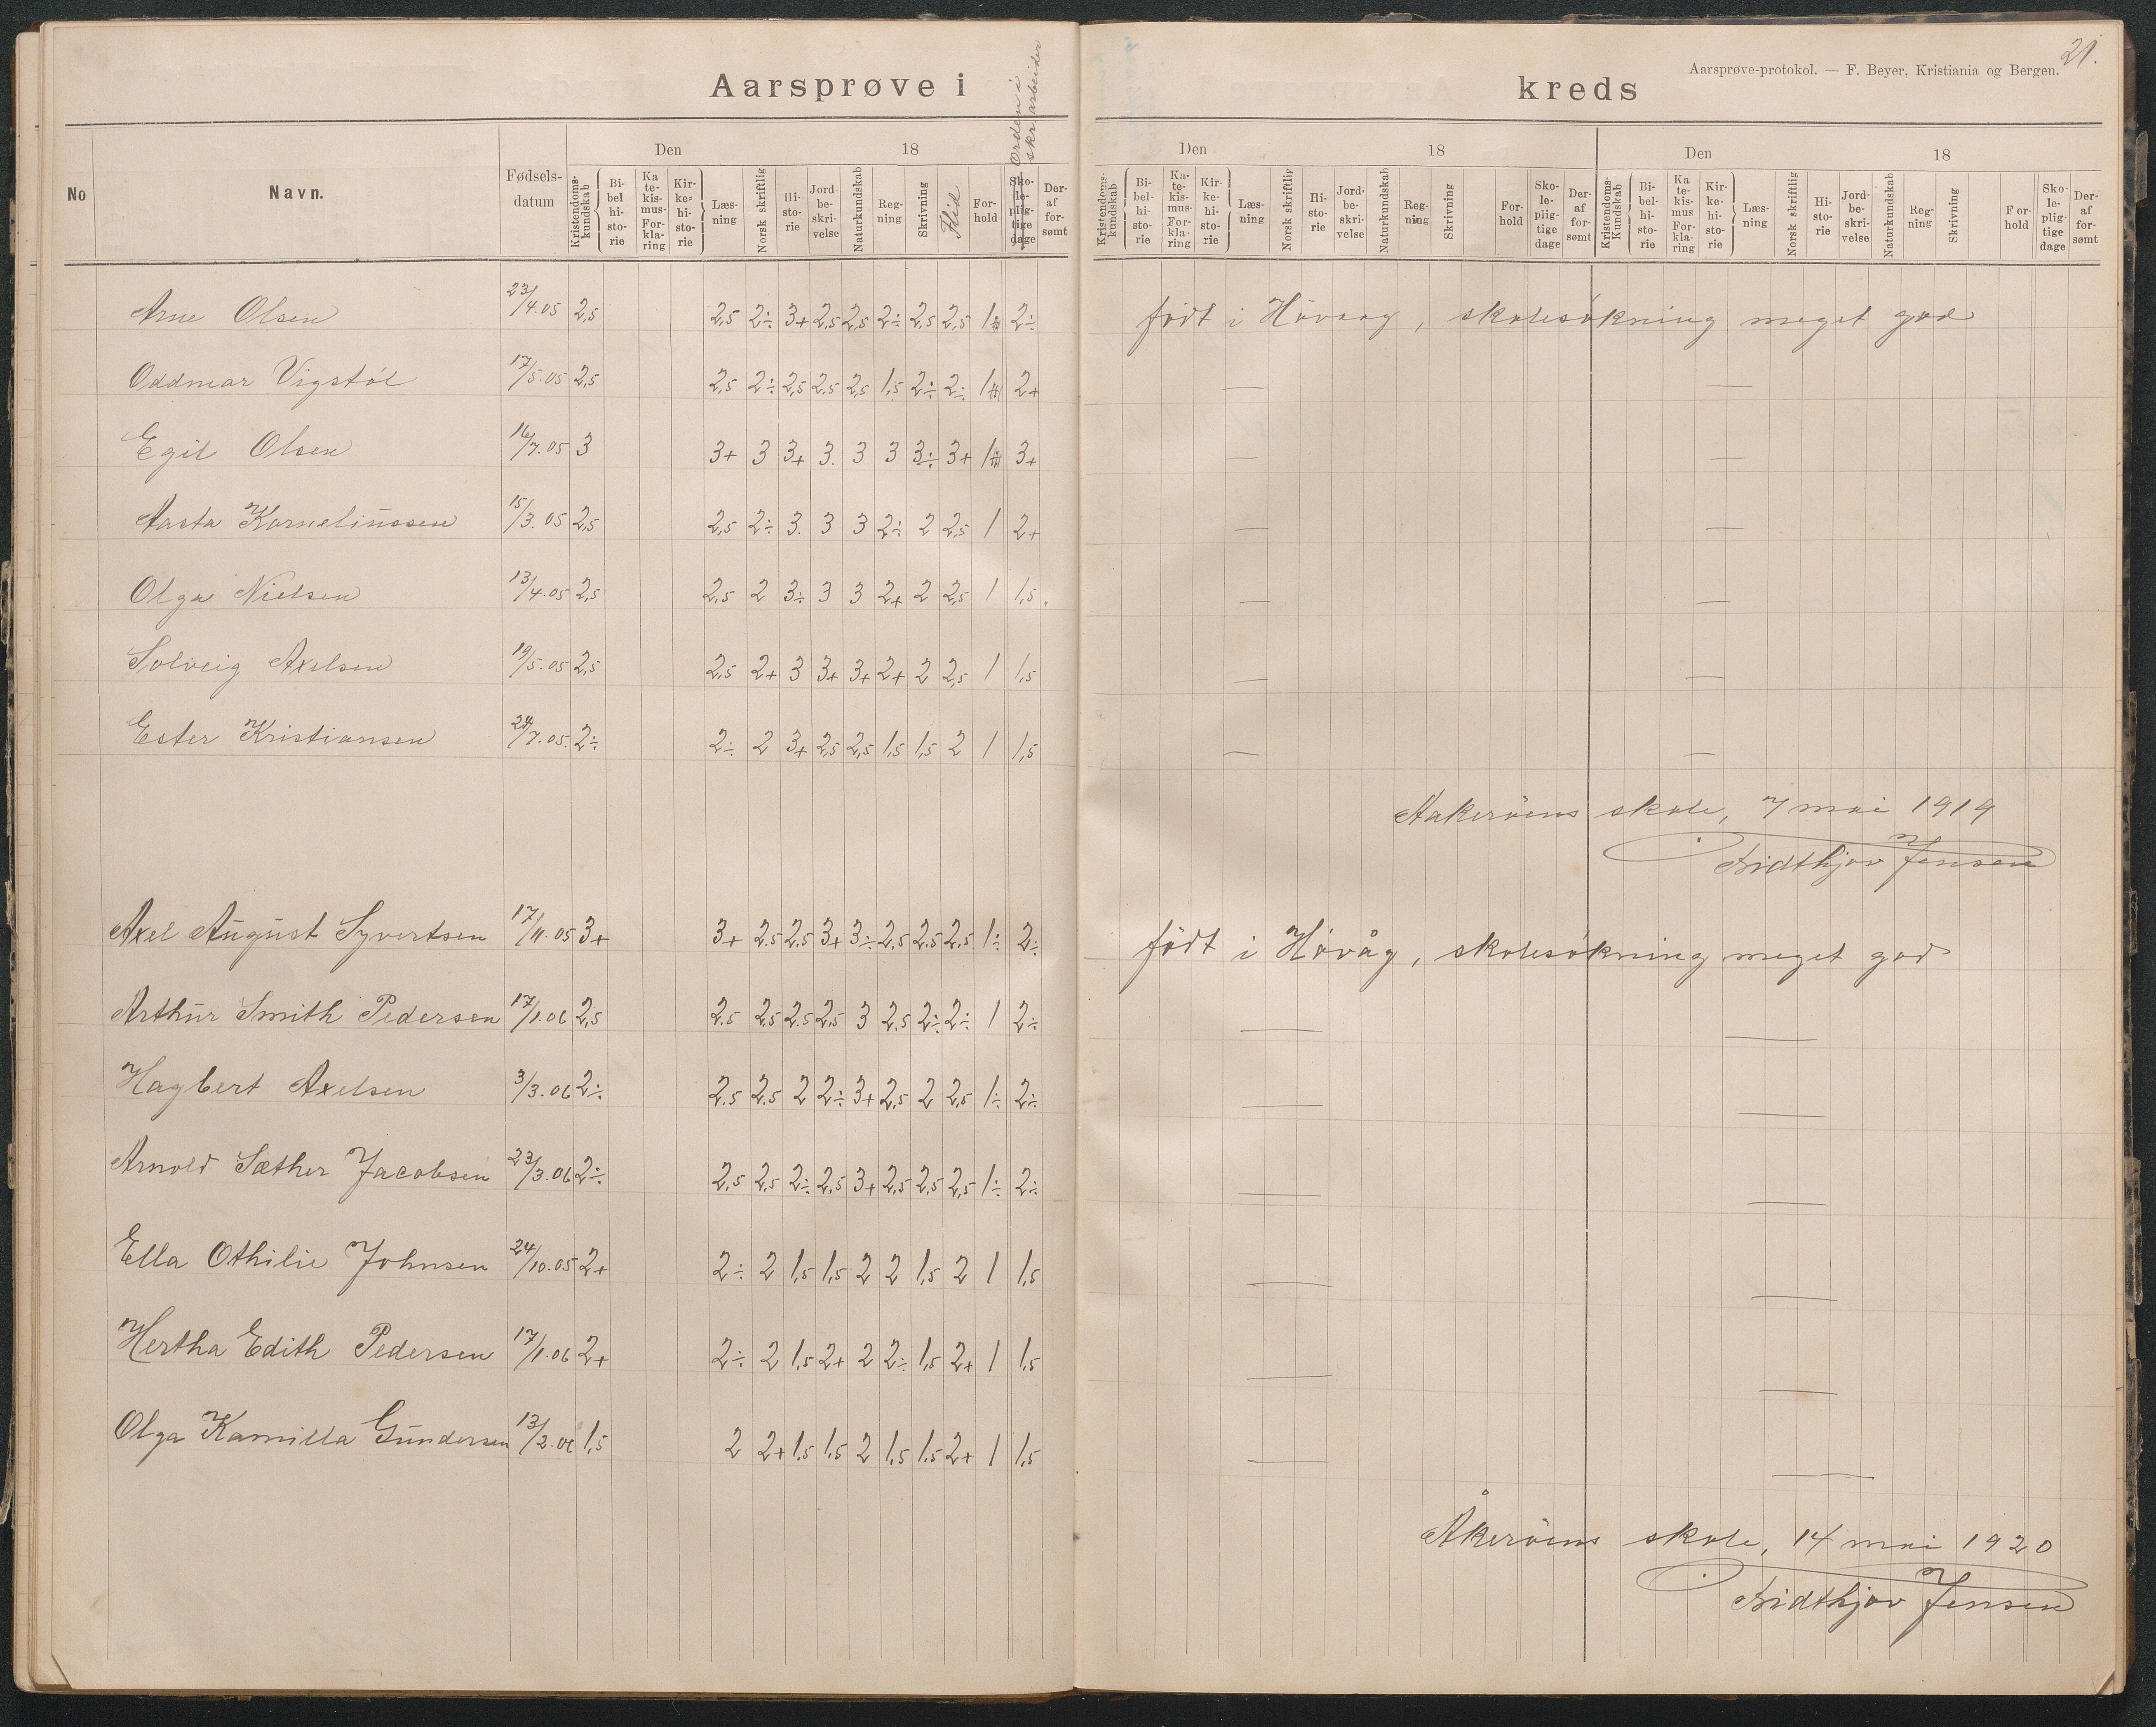 21.
Aarsprøve-protokol. — F. Beyer, Kristiania og Bergen.
Aarsprøve i kreds
Orden i skr. arbeider
Den 18 Den 18 Den 18
No Navn. Fødselsdatum Kristendomskundskab Bibelhistorie Katekismus-Forklaring Kirkehistorie Læsning Norsk skriftlig Historie Jordbeskrivelse Naturkundskab Regning Skrivning Flid Forhold Skolepligtige dage Deraf forsømt
Kristendomskundskab Bibelhistorie Katekismus-Forklaring Kirkehistorie Læsning Norsk skriftlig Historie Jordbeskrivelse Naturkundskab Regning Skrivning Forhold Skolepligtige dage Deraf forsømt
Kristendoms Kundskab Bibelhistorie Katekismus Forklaring Kirkehistorie Læsning Norsk skriftlig Historie Jordbeskrivelse Naturkundskab Regning Skrivning Forhold Skolepligtige dage Deraf forsømt
Arne Olsen 23/4.05 2,5 2,5 2÷ 3+ 2,5 2,5 2÷ 2,5 2,5 1 2÷ født i Høvaag, skolesøkning meget god
Oddmar Vigstøl 17/5.05 2,5 2,5 2÷ 2,5 2,5 2,5 1,5 2÷ 2÷ 1 2+ — —
Egil Olsen 16/7.05 3 3+ 3 3+ 3. 3 3 3÷ 3+ 1 3+ — —
Aasta Kornelinssen 15/3.05 2,5 2,5 2÷ 3. 3 3 2÷ 2 2,5 1 2+ — —
Olga Nielsen 13/4.05 2,5 2,5 2 3÷ 3 3 2+ 2 2,5 1 1,5. — —
Solveig Axelsen 19/5.05 2,5 2,5 2+ 3 3+ 3+ 2+ 2 2,5 1 1,5 — —
Ester Kristiansen 24/7.05. 2÷ 2÷ 2 3+ 2,5 2,5 1,5 1,5 2 1 1,5 — —
Aakerøens skole, 7 mai 1919
Fridthjov Jensen
Axel August Syvertsen 17/11.05 3+ 3+ 2.5 2.5 3+ 3÷ 2,5 2.5 2.5 1÷ 2÷ født i Høvåg, skolesøkning meget god
Arthur Smith Pedersen 17/1.06 2,5 2.5 2.5 2.5 2,5 3 2,5 2÷ 2÷ 1 2÷ — —
Hagbert Axelsen 3/3.06 2÷ 2.5 2.5 2 2÷ 3+ 2,5 2 2,5 1÷ 2÷ — —
Arnold Sæther Jacobsen 23/3.06 2÷ 2,5 2,5 2÷ 2,5 3+ 2,5 2,5 2,5 1÷ 2÷ — —
Ella Othilie Johnsen 24/10.05 2+ 2÷ 2 1,5 1,5 2 2 1,5 2 1 1,5 — —
Hertha Edith Pedersen 17/1.06 2+ 2÷ 2 1,5 2+ 2 2÷ 1,5 2+ 1 1,5 — —
Olga Kamilla Gundersen 13/2.06 1,5 2 2+ 1,5 1,5 2 1,5 1.5 2+ 1 1,5 — —
Åkerøens skole, 14 mai 1920
Fridthjov Jensen